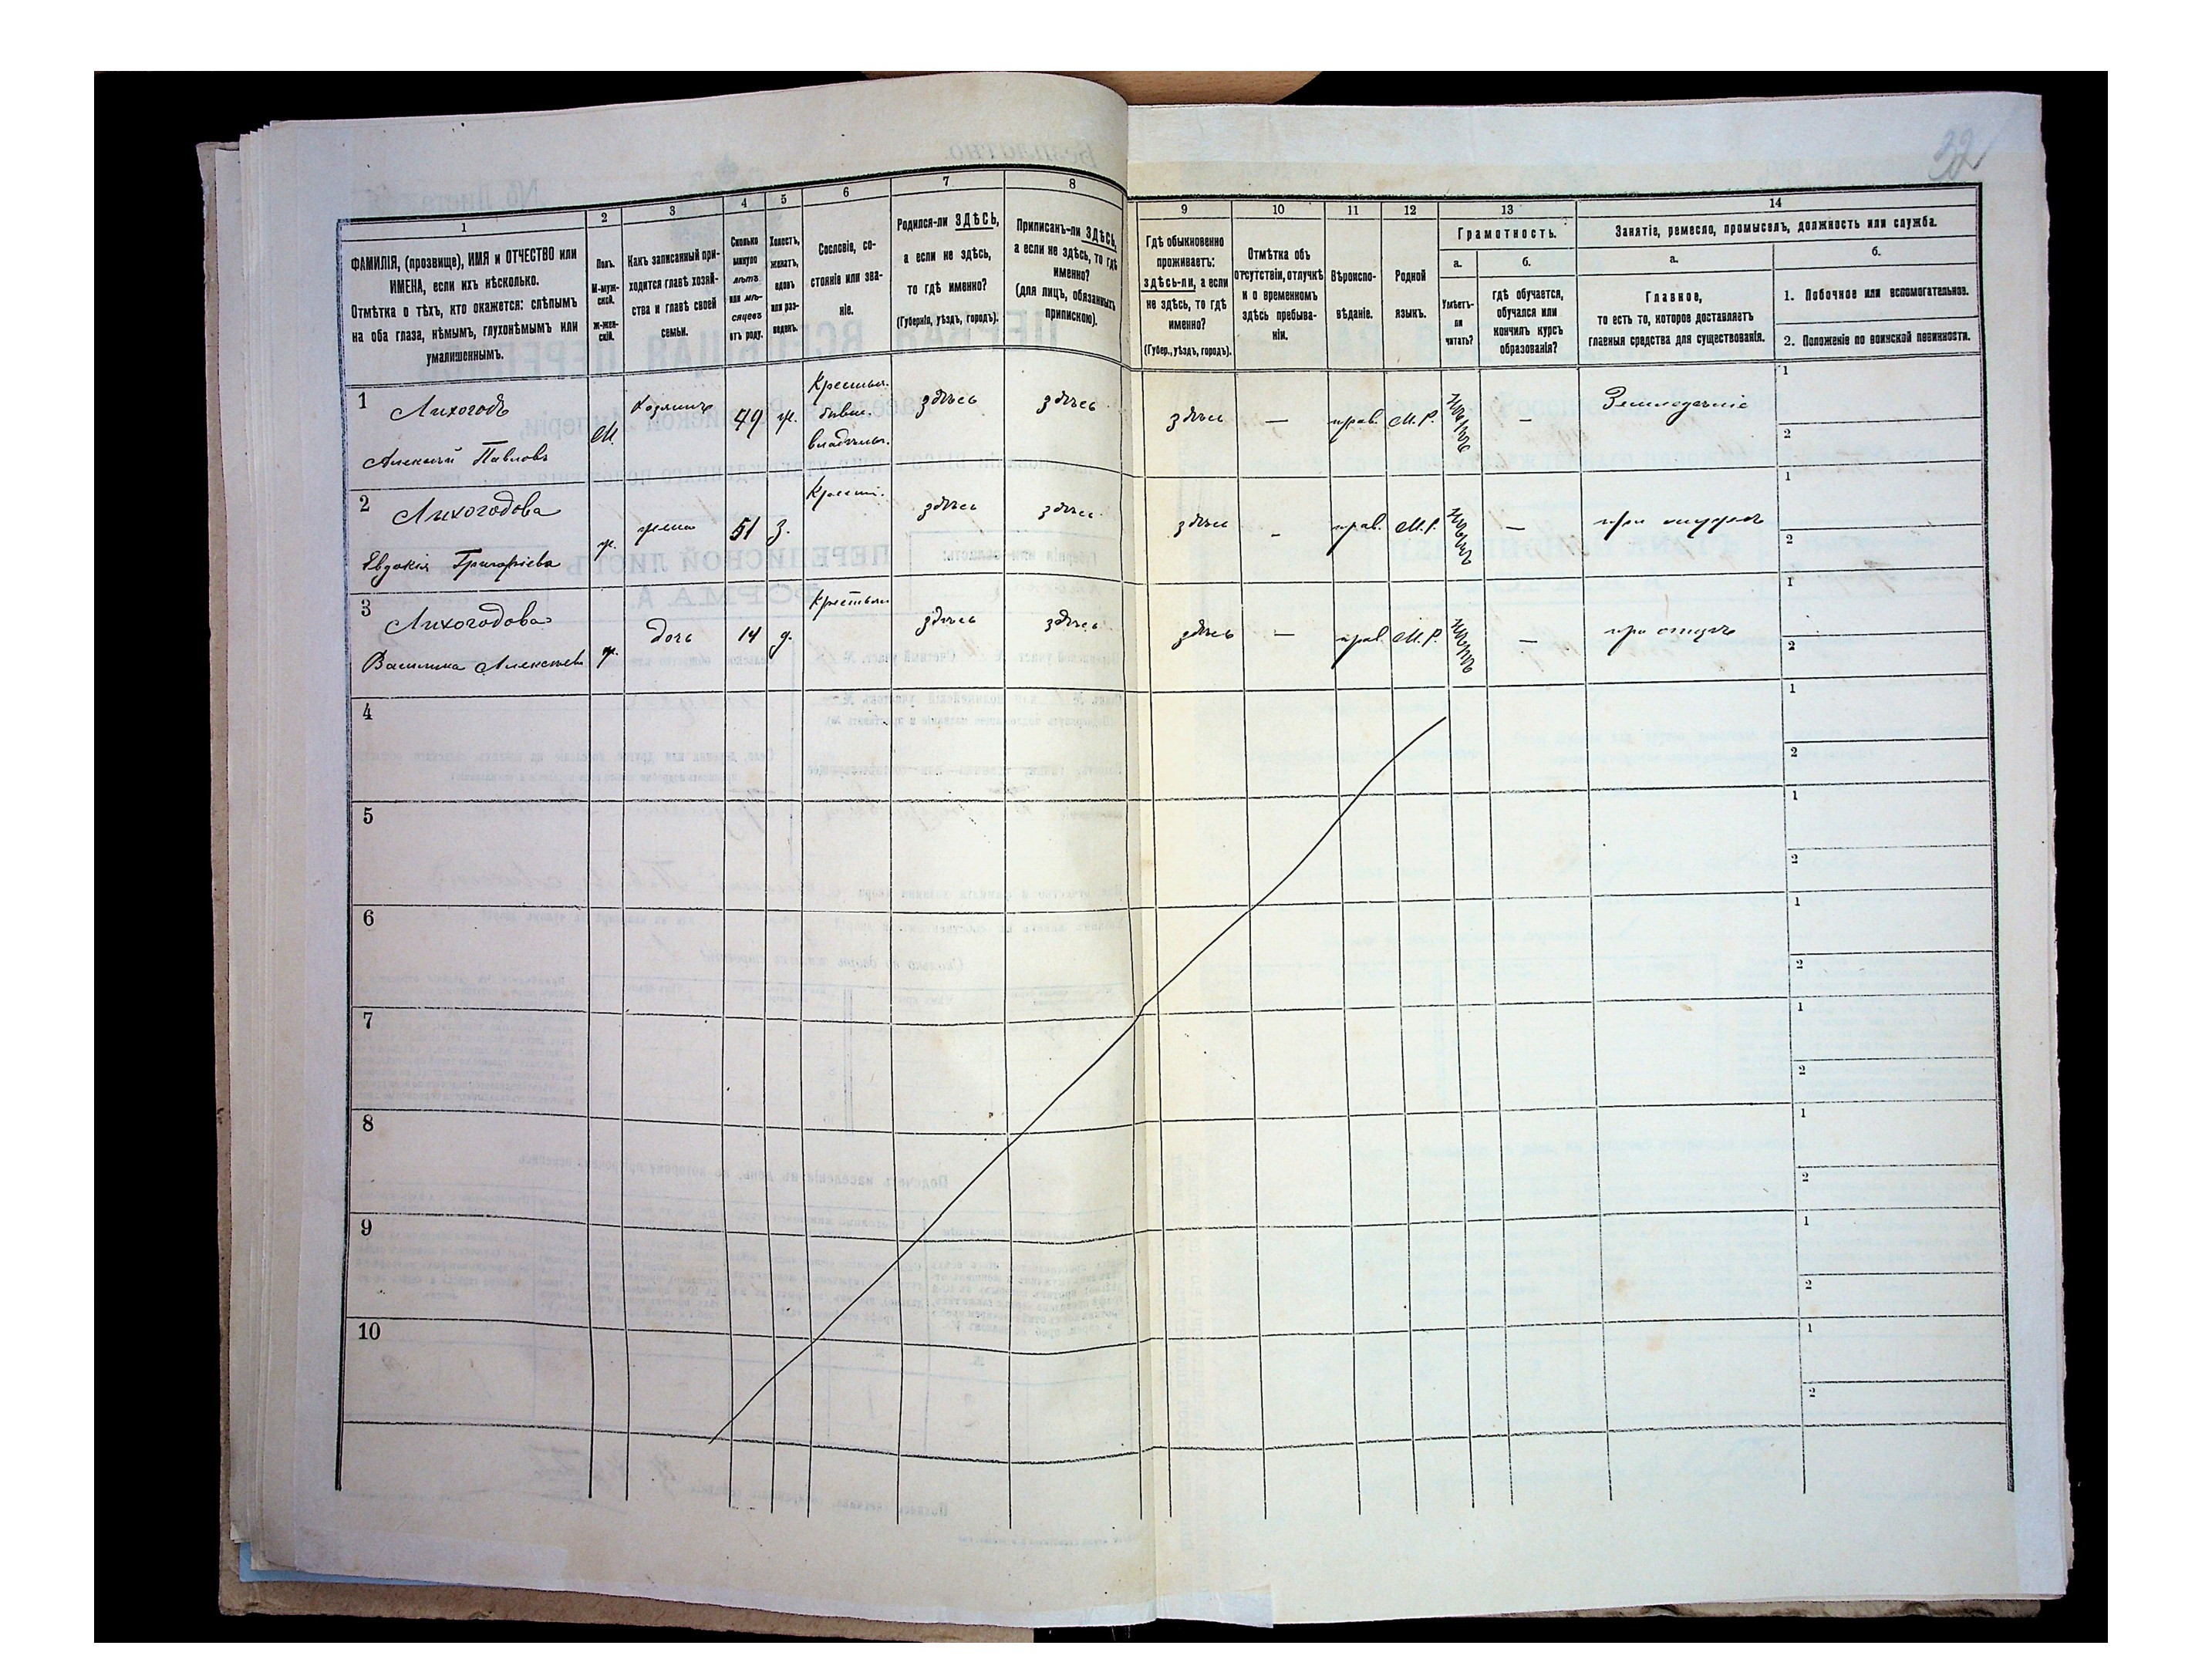 32
1
2
3
4
5
6
7
8
9
10
11
12
13
14
ФАМИЛІЯ, (прозвище), ИМЯ и ОТЧЕСТВО или
ИМЕНА, если ихъ нѣсколько.
Отмѣтка о тѣхъ, кто окажется: слѣпымъ
на оба глаза, нѣмымъ, глухонѣмымъ или
умалишеннымъ.
Полъ.
М-муж-
ской.
ж-жен-
скій.
Какъ записанный при-
ходится главѣ хозяй-
ства и главѣ своей
семьи.
Сколько
минуло
лѣтъ
или мѣ-
сяцевъ
отъ роду.
Холостъ,
женатъ,
вдовъ
или раз-
веденъ.
Сословіе, со-
стояніе или зва-
ніе.
Родился-ли ЗДѢСЬ,
а если не здѣсь,
то гдѣ именно?
(Губернія, уѣздъ, городъ).
Приписанъ-ли ЗДѢСЬ,
а если не здѣсь, то гдѣ
именно?
(для лицъ, обязанныхъ
припискою).
Гдѣ обыкновенно
проживаетъ:
здѣсь-ли, а если
не здѣсь, то гдѣ
именно?
(Губер., уѣздъ, городъ).
Отмѣтка объ
отсутствіи, отлучкѣ
и о временномъ
здѣсь пребыва-
ніи.
Вѣроиспо-
вѣданіе.
Родной
языкъ.
Грамотность.
а.
б.
Умѣетъ-
ли
читать?
гдѣ обучается,
обучался или
кончилъ курсъ
образованія?
Занятіе, ремесло, промыселъ, должность или служба.
а.
б.
Главное,
то есть то, которое доставляетъ
главныя средства для существованія.
1. Побочное или вспомогательное.
2. Положеніе по воинской повинности.
1 Лихогодъ
Алексѣй Павловъ
М.
Хозяинъ
49
ж.
Крестьян.
бывш.
владѣльч.
здѣсь
здѣсь
здѣсь
—
прав.
М.Р.
—
Земледѣліе
1
2
2 Лихогодова
Евдокія Григоріева
ж.
жена
51
з.
здѣсь
здѣсь
здѣсь
—
прав.
М.Р.
—
при мужѣ
1
2
3 Лихогодова
Василиса Алексѣева
ж.
дочь
14
д.
Крестьян
здѣсь
здѣсь
здѣсь
—
прав.
М.Р.
—
при отцѣ
1
2
4
1
2
5
1
2
6
1
2
7
1
2
8
1
2
9
1
2
10
1
2